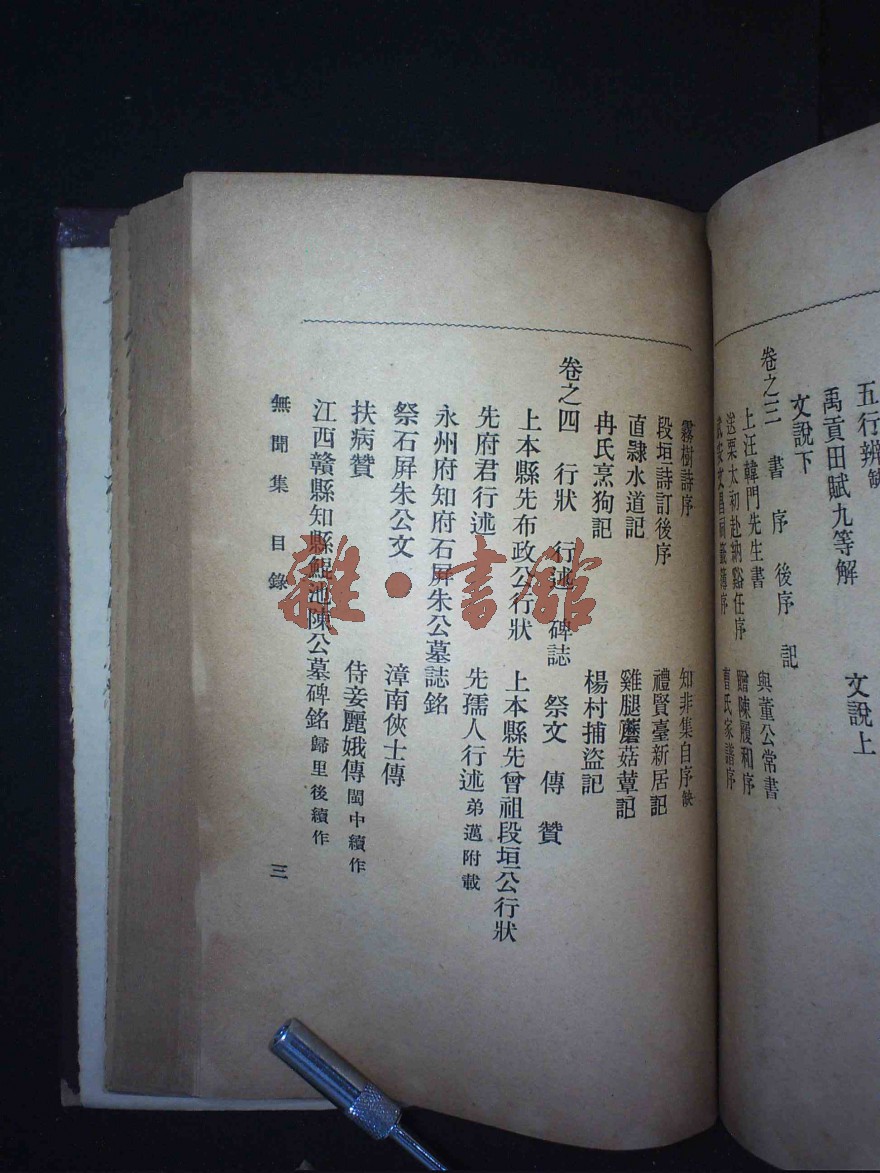 五行辨缺
禹貢田賦九等解 文說上
文說下
卷之三 書 序 後序 記
上汪韓門先生書 與董公常書
送栗太初赴納谿任序 贈陳履和序
文昌祠籤簿序 曹氏家譜序
霧樹詩序 知非集自序缺
段垣詩訂後序 禮賢臺新居記
直隸水道記 雞腿蘑菇蕈記
冉氏烹狗記 楊村捕盜記
卷之四 行狀 行述 碑誌 祭文 傳 贊
上本縣先布政公行狀 上本縣先曾祖段垣公行狀
先府君行述 先孺人行述弟邁附載
永州府知府石屏朱公墓誌銘
祭石屏朱公文 漳南俠士傳
扶病贊 侍妾麗娥傳閩中續作
江西贛縣知縣鯤池陳公墓碑銘歸里後續作
無聞集 目錄 三
雜·書館